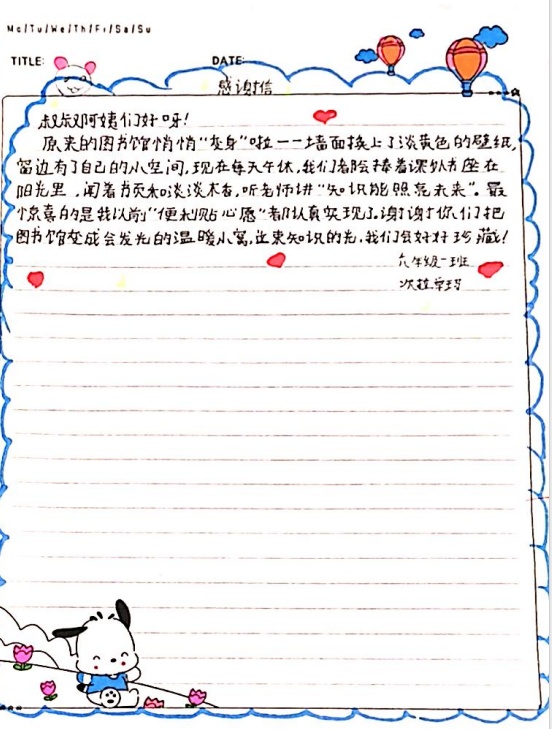 Mo/Tu/We/Th/Fr/Sa/Su
TITLE: DATE:
感谢信
叔叔阿姨们好呀!
原来的图书馆悄悄“变身”啦——墙面换上了淡黄色的壁纸,
窗边有了自己的小空间,现在每天午休,我们都会捧着课外书座在
阳光里,闻着书页和淡淡木香,听老师讲“知识能照亮未来”。最
惊喜的是我以前“便利贴心愿”都认真实现了。谢谢你们把
图书馆变成会发光的温暖小窝,这束知识的光,我们会好好珍藏!
六年级一班
次拉卓玛